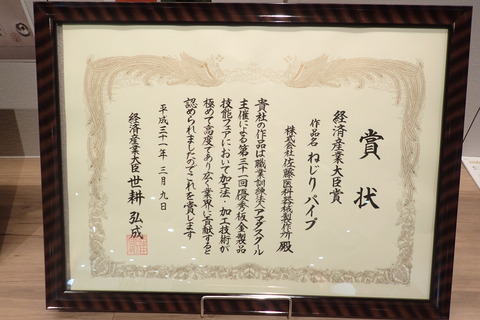 賞状
経済産業大臣賞
作品名 ねじりパイプ
株式会社佐藤医科器械製作所 殿
貴社の作品は職業訓練法人アマダスクール
主催による第三十一回優秀板金製品
技能フェアにおいて加工法・加工技術が
極めて高度であり広く業界に貢献すると
認められましたのでこれを賞します
平成三十一年三月九日
経済産業大臣 世耕弘成